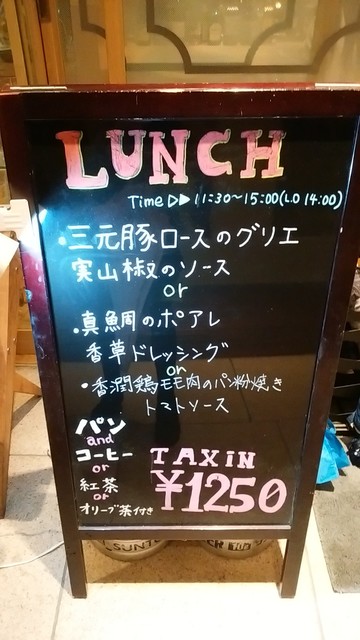 LUNCH
Time ▷▷ 11:30~15:00(L.O 14:00)
・三元豚ロースのグリエ
実山椒のソース
or
・真鯛のポアレ
香草ドレッシング
or
・香潤鶏モモ肉のパン粉焼き
トマトソース
パン
and
コーヒー
or
紅茶
or
オリーブ茶付き
TAX IN
¥1250